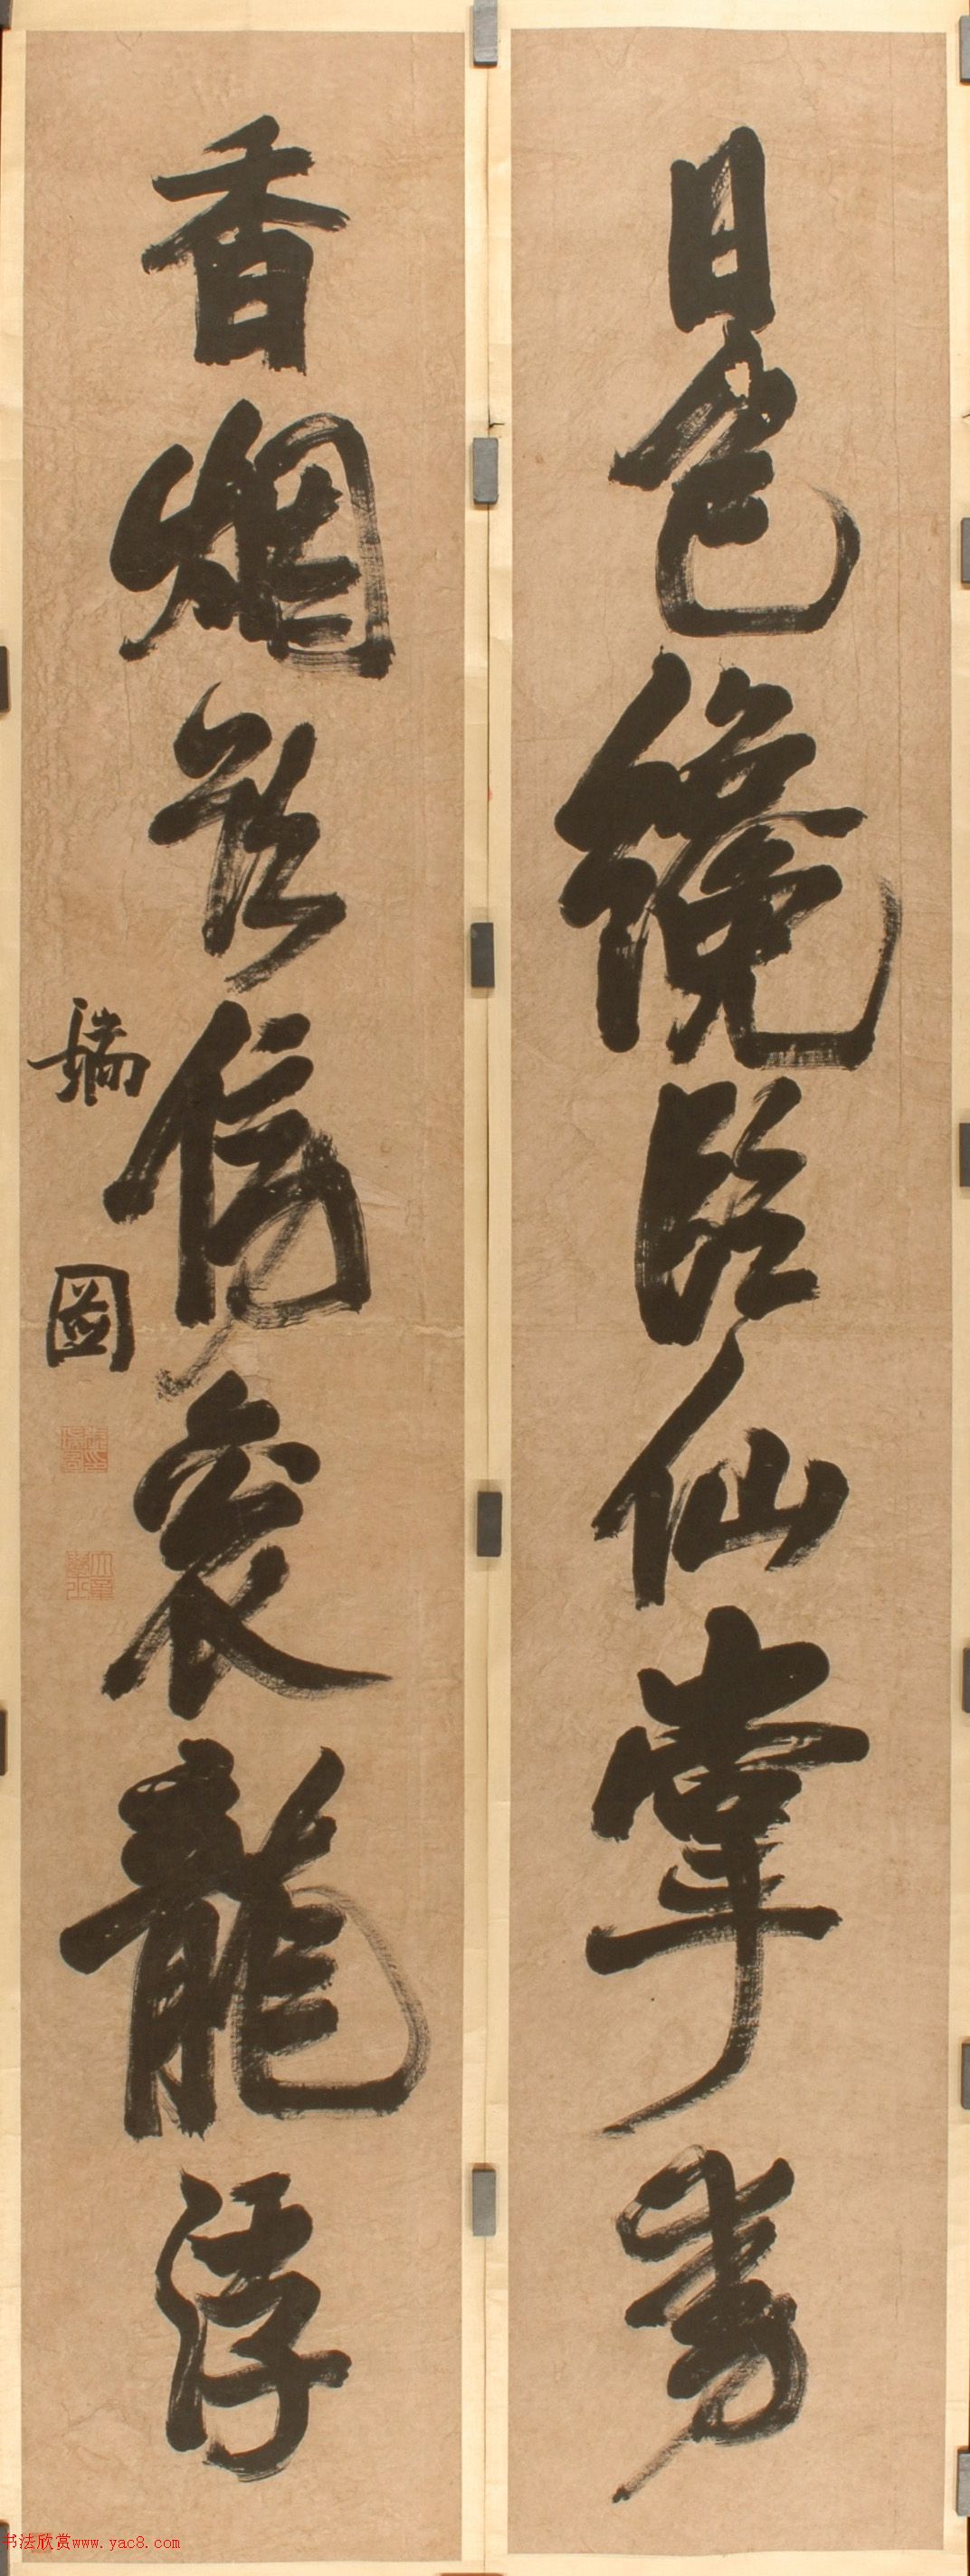 日色纔臨仙掌動
香烟欲傍衮龍浮
瑞圖
书法欣赏www.yac8.com